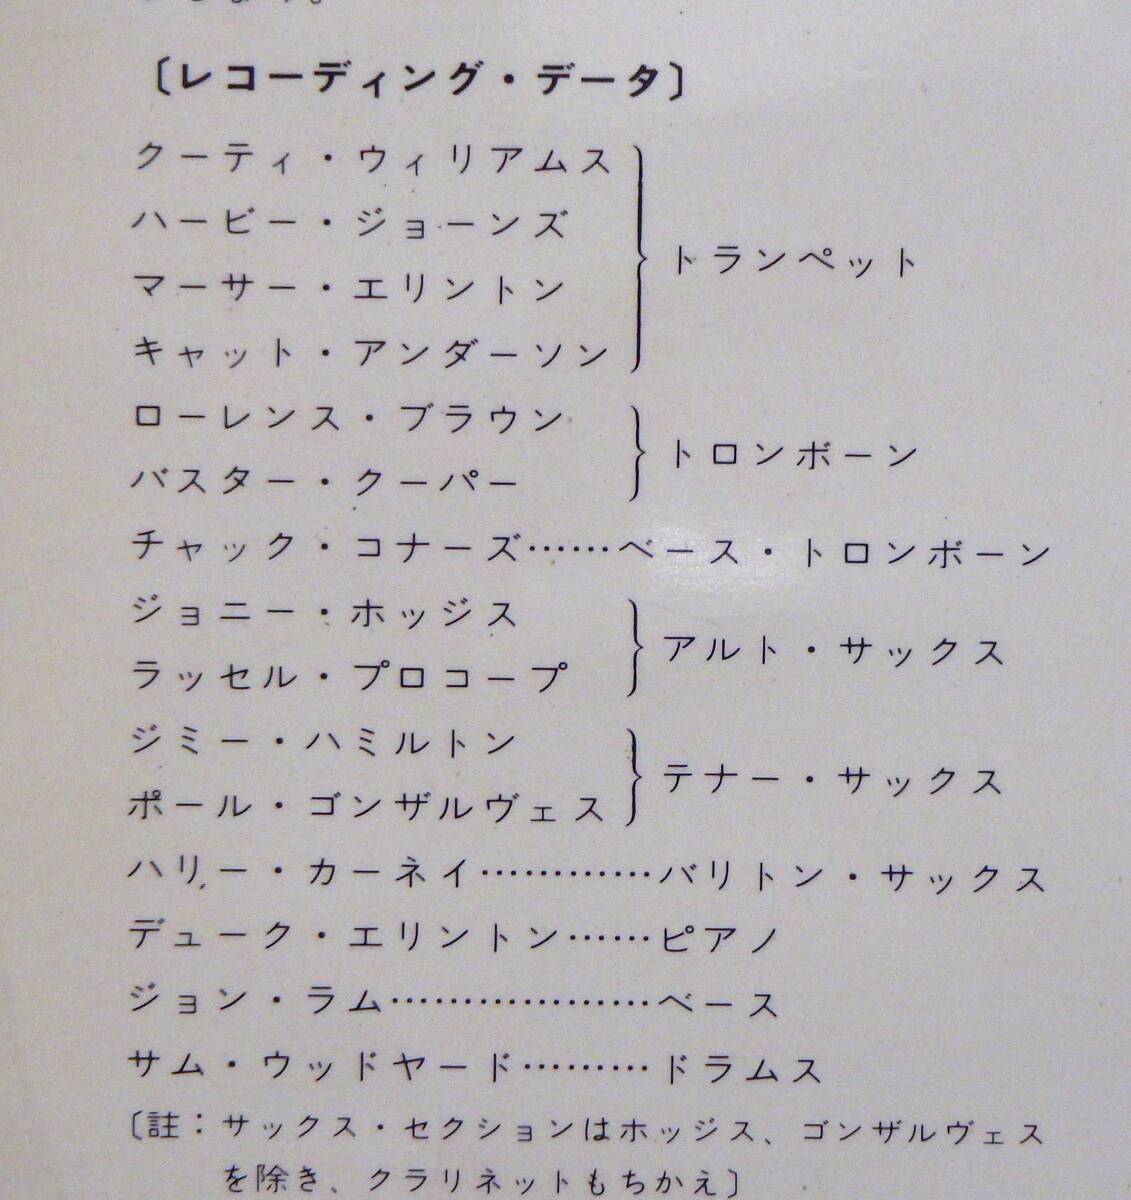 〔レコーディング・データ〕
クーティ・ウィリアムス
ハービー・ジョーンズ
マーサー・エリントン
キャット・アンダーソン
トランペット
ローレンス・ブラウン
バスター・クーパー
トロンボーン
チャック・コナーズ……ベース・トロンボーン
ジョニー・ホッジス
ラッセル・プロコープ
アルト・サックス
ジミー・ハミルトン
ポール・ゴンザルヴェス
テナー・サックス
ハリー・カーネイ…………バリトン・サックス
デューク・エリントン……ピアノ
ジョン・ラム………………ベース
サム・ウッドヤード………ドラムス
〔註：サックス・セクションはホッジス、ゴンザルヴェス
を除き、クラリネットもちかえ〕